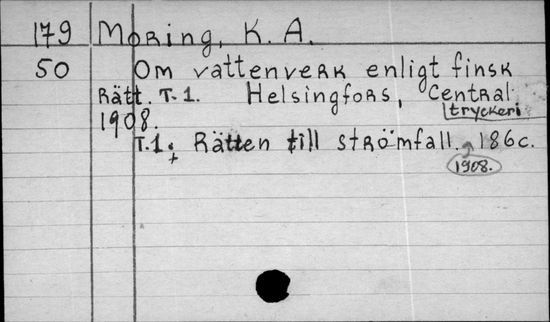 179 Moring, K. A.
50 Om vattenverk enligt finsk
Rätt. T. 1. Helsingfors, Central
tryckeri
1908.
T.1: Rätten till strömfall. 186 c.
1908.